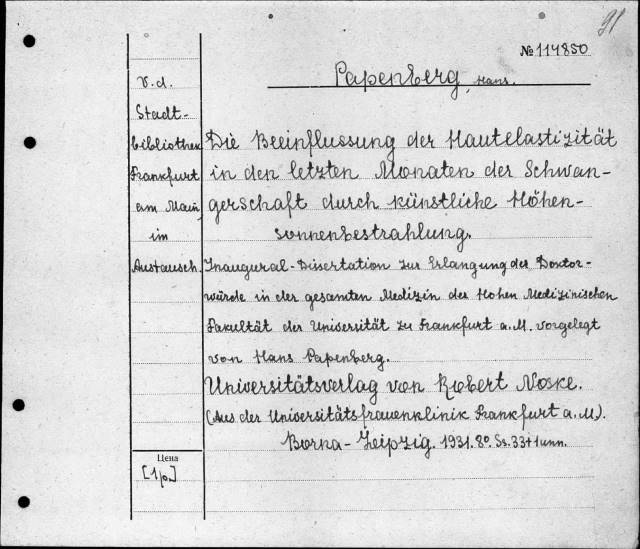 91
№ 114850
Papenberg, Hans.
V. d.
Stadt-
bibliothek
Frankfurt
am Main,
im
Austausch.
Die Beeinflussung der Hautelastizität
in den letzten Monaten der Schwan-
gerschaft durch künstliche Höhen-
sonnenbestrahlung.
Inaugural-Dissertation zur Erlangung der Doktor-
würde in der gesamten Medizin der Hohen Medizinischen
Fakultät der Universität zu Frankfurt a. M. vorgelegt
von Hans Papenberg.
Universitätsverlag von Robert Noske.
(Aus der Universitätsfrauenklinik Frankfurt a. M.).
Borna-Leipzig. 1931. 8º. Ss. 33+1 unn.
Цена
[1 р.]